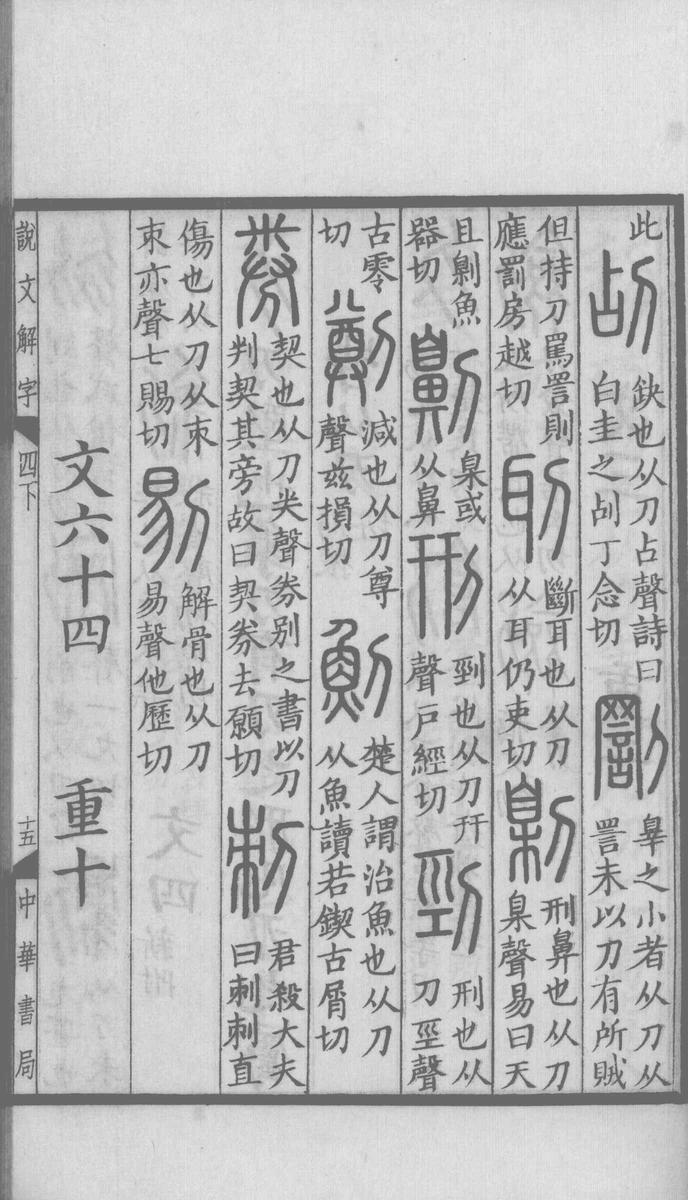 此
㓠
缺也从刀占聲詩曰
白圭之㓠丁念切
罰
辠之小者从刀从
詈未以刀有所賊
但持刀罵詈則
應罰房越切
刵
斷耳也从刀
从耳仍吏切
劓
刑鼻也从刀
臬聲易曰天
且劓魚
器切
劓
臬或
从鼻
㓝
剄也从刀幵
聲戶經切
剄
刑也从
刀巠聲
古零
切
㔃
減也从刀尊
聲兹損切
魝
楚人謂治魚也从刀
从魚讀若鍥古屑切
券
契也从刀𢍏聲券别之書以刀
判契其旁故曰契券去願切
刺
君殺大夫
曰刺刺直
傷也从刀从朿
朿亦聲七賜切
剔
解骨也从刀
易聲他歷切
文六十四　重十
說文解字　四下　十五　中華書局